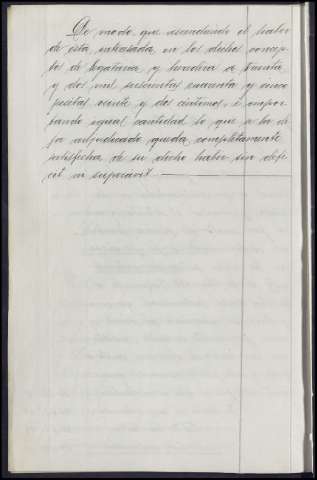 De modo que ascendiendo el haber
de esta interesada, en los dichos concep-
tos de legataria y heredera a treinta
y dos mil setecientas cuarenta y cinco
pesetas veinte y dos centimos, e impor-
tando igual cantidad lo que a la di-
ja adjudicado queda completamente
satisfecha de su dicho haber sin defi-
cit ni superavit.